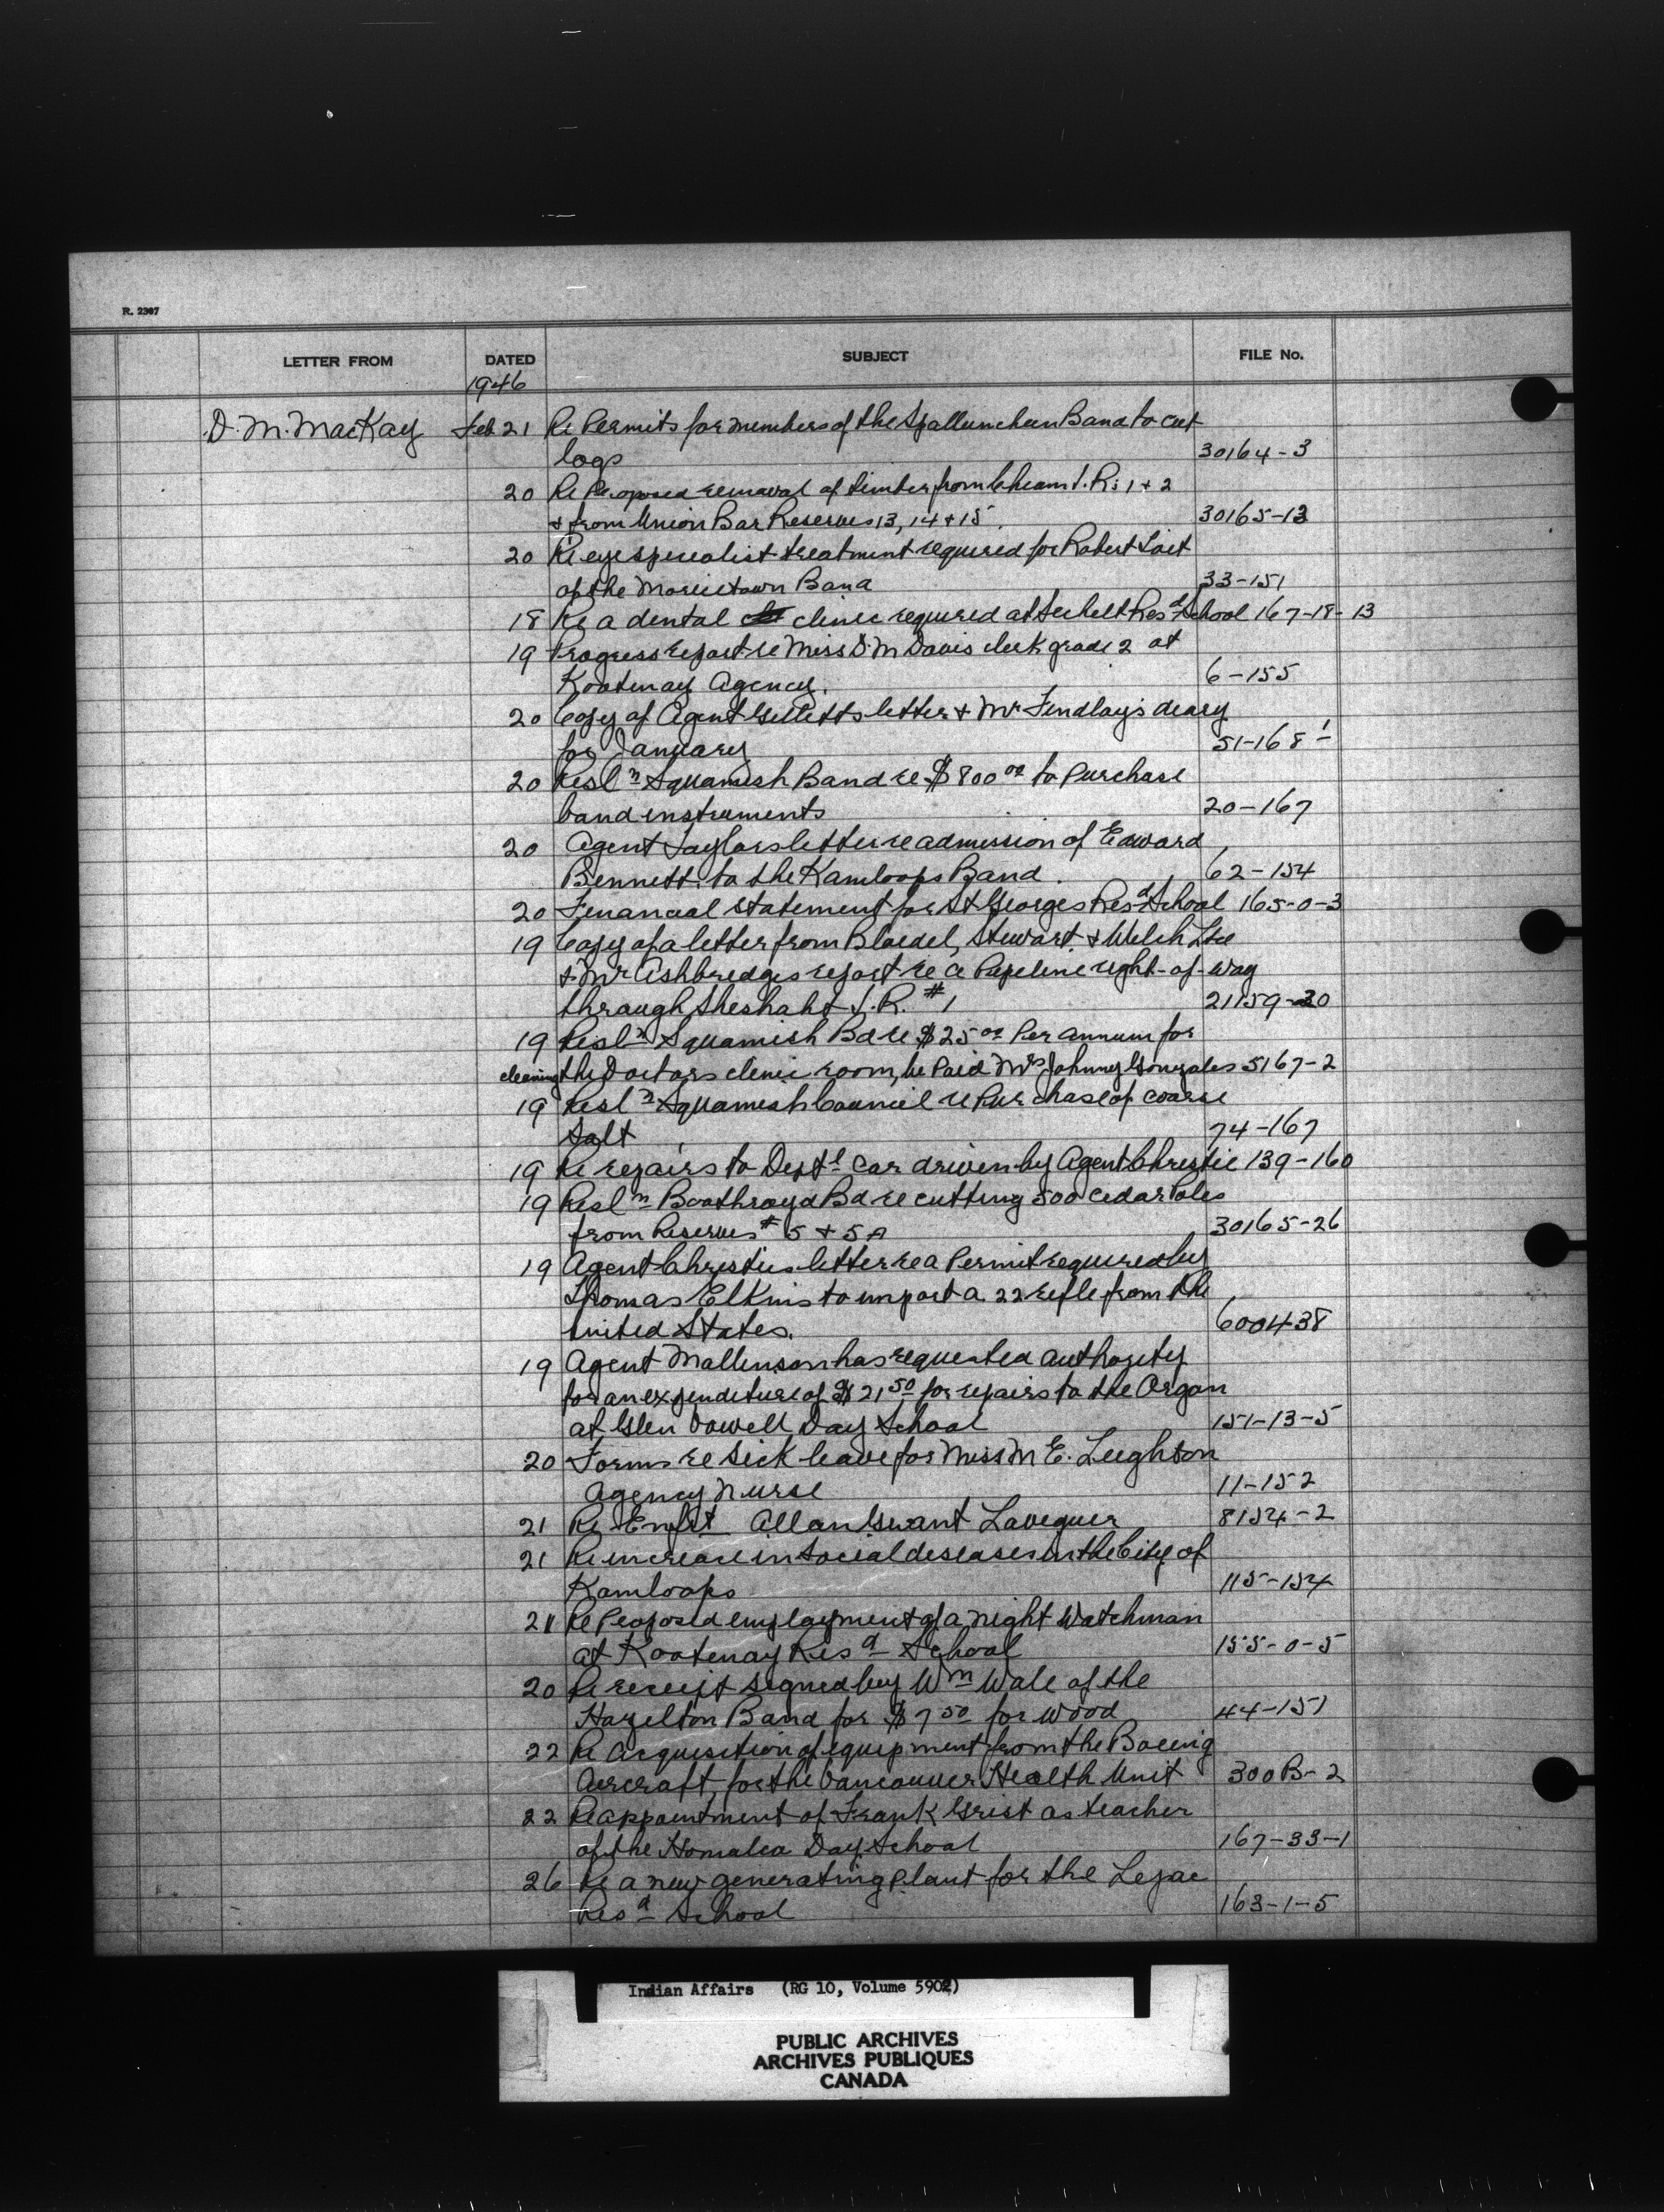 R. 2307
LETTER FROM DATED SUBJECT FILE No.
1946
D. M. MacKay Feb 21 Re Permits for members of the Spallumcheen Band to cut
logs 30164-3
20 Re Proposed removal of timber from Cheam I.Rs 1 + 2
+ from Union Bar Reserves 13, 14 + 15. 30165-13
20 Re eye specialist treatment required for Robert
of the Moricetown Band 33-151
18 Re a dental clinic required at Sechelt Resd School 167-18-13
19 Progress report re Miss D. M Davis clerk grade 2 at
Kootenay Agency. 6-155
20 Copy of Agent Gilletts letter + Mr Findlay's diary
for January 51-168-1
20 Resln Squamish Band re $800 00 to Purchase
band instruments 20-167
20 Agent Taylors letter re admission of Edward
Bennett to the Kamloops Band. 62-154
20 Financial statement for St Georges Resd School 165-0-3
19 Copy of a letter from Bloedel, Stewart + Welch Ltd
+ Mr Ashbridges report re a Pipeline right-of-way
through Sheshaht I.R. #1 21159-20
19 Resln Squamish Bd re $25 00 Per annum for
cleaning the Doctors clinic room, be Paid Mrs Johnny Gonzales 5167-2
19 Resln Squamish Council re Purchase of coarse
Salt 74-167
19 Re repairs to Deptl car driven by Agent Christie 139-160
19 Resln Boothroyd Bd re cutting 500 cedar Poles
from Reserves # 5 + 5A 30165-26
19 Agent Christies letter re a Permit required by
Thomas Elkins to import a 22 rifle from the
United States. 600438
19 Agent Mallinson has requested authority
for an expenditure of $21 50 for repairs to the Organ
at Glen Vowell Day School 151-13-5
20 Forms re sick leave for Miss M E. Leighton
Agency Nurse 11-152
21 Re Enfst Allan Grant 8154-2
21 Re increase in Social diseases in the City of
Kamloops 115-154
21 Re Proposed employment of a night Watchman
at Kootenay Resd School 155-0-5
20 Re receipt signed by Wm Wale of the
Hazelton Band for $7 50 for wood 44-151
22 Re Acquisition of equipment from the Boeing
Aircraft for the Vancouver Health Unit 300B-2
22 Re appointment of Frank Grist as teacher
of the Homalco Day School 167-33-1
26 Re a new generating plant for the Lejac
Resd School 163-1-5
Indian Affairs (RG 10, Volume 5902)
PUBLIC ARCHIVES
ARCHIVES PUBLIQUES
CANADA